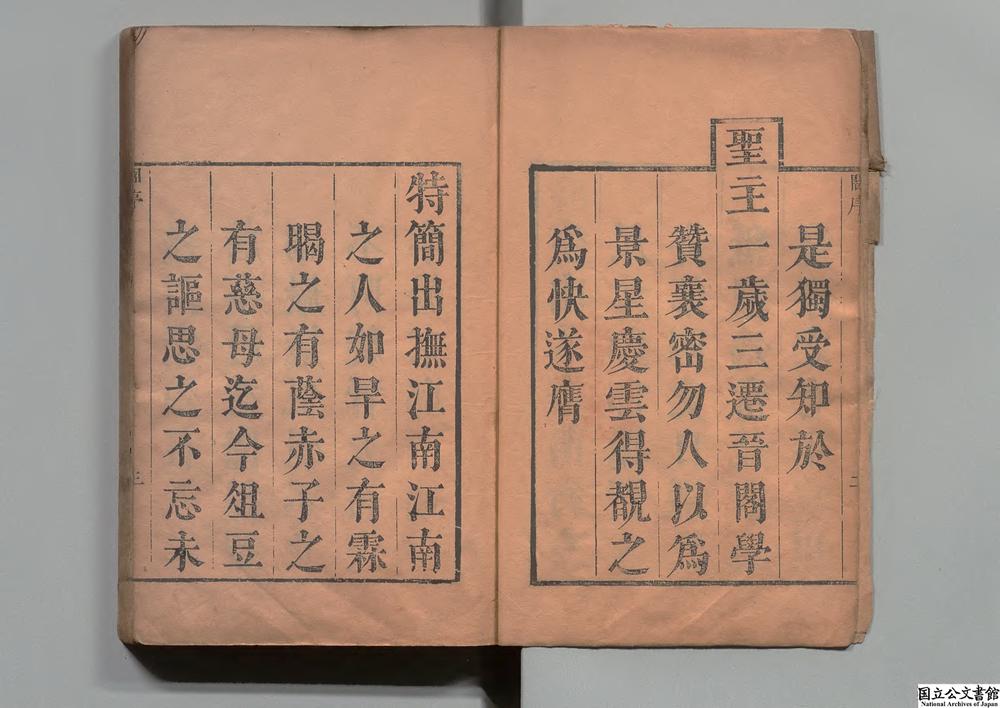 是獨受知於
聖主一歲三遷晉閣學
贊襄密勿人以爲
景星慶雲得覩之
爲快遂膺
特簡出撫江南江南
之人如旱之有霖
暍之有蔭赤子之
有慈母迄今俎豆
之謳思之不忘未
国立公文書館
National Archives of Japan